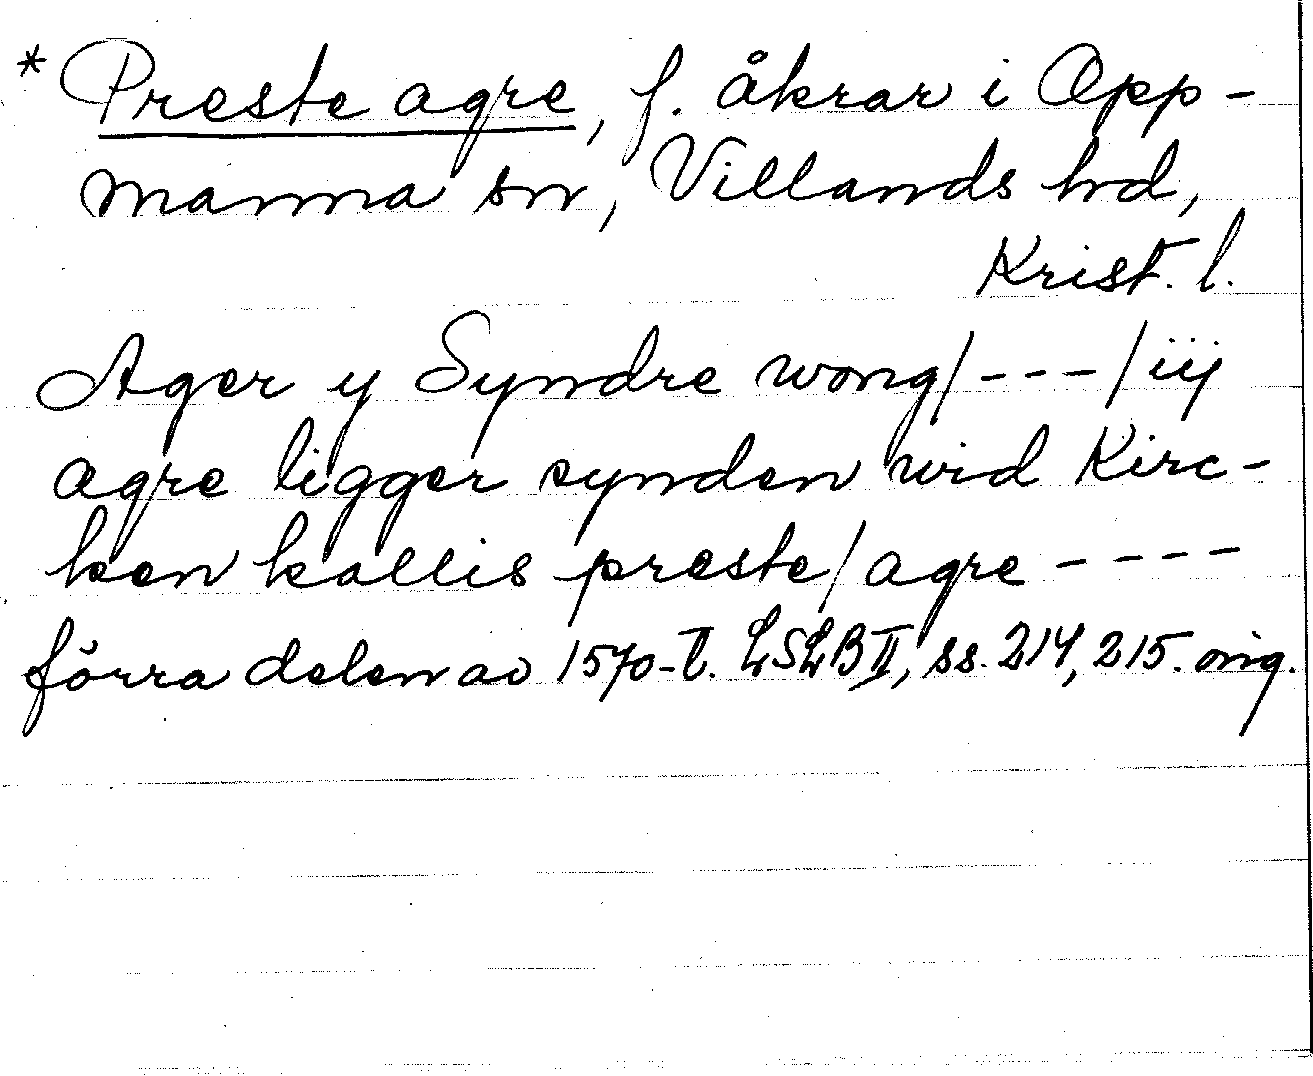 * Preste agre, f. åkrar i Opp-
manna sn, Villands hd,
Krist. l.
Ager y Syndre wong/---/iij
agre ligger synden wid Kirc-
ken kallis preste/agre ----
förra delen av 1570-t. LSLB II, ss. 214, 215. orig.